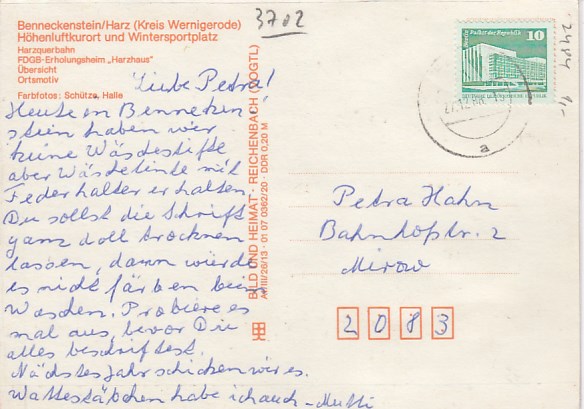 Benneckenstein/Harz (Kreis Wernigerode)
Höhenluftkurort und Wintersportplatz
Harzquerbahn
FDGB-Erholungsheim „Harzhaus"
Übersicht
Ortsmotiv
Farbfotos: Schütze, Halle
3702
Liebe Petra!
Heute in Benneken
stein haben wir
keine Wäschestifte
aber Wäschetinte mit
Federhalter erhalten.
Du sollst die Schrift
ganz doll trocknen
lassen, dann würde
es nicht färben beim
Waschen. Probiere es
mal aus, bevor Du
alles beschriftest.
Nächstes Jahr schicken wir es.
Wattestäbchen habe ich auch – Mutti
BILD UND HEIMAT · REICHENBACH (VOGTL)
A1/III/26/13 · 01 07 0362/20 · DDR 0,20 M
Berlin Palast der Republik
10
DEUTSCHE DEMOKRATISCHE REPUBLIK
27.12.88
a
2484
1,-
Petra Hahn
Bahnhofstr. 2
Mirow
2083